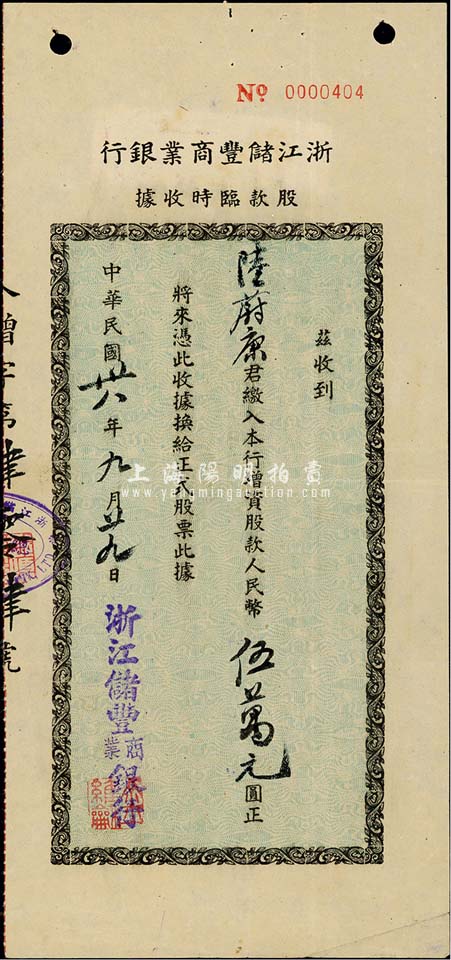 Nº 0000404
浙江儲豐商業銀行
股款臨時收據
茲收到
陸蔚康君繳入本行增資股款人民幣伍萬元圓正
將來憑此收據換給正式股票此據
中華民國卅八年九月廿九日
浙江儲豐商業銀行
上海陽明拍賣
www.yangmingauction.com
增字第肆
肆號